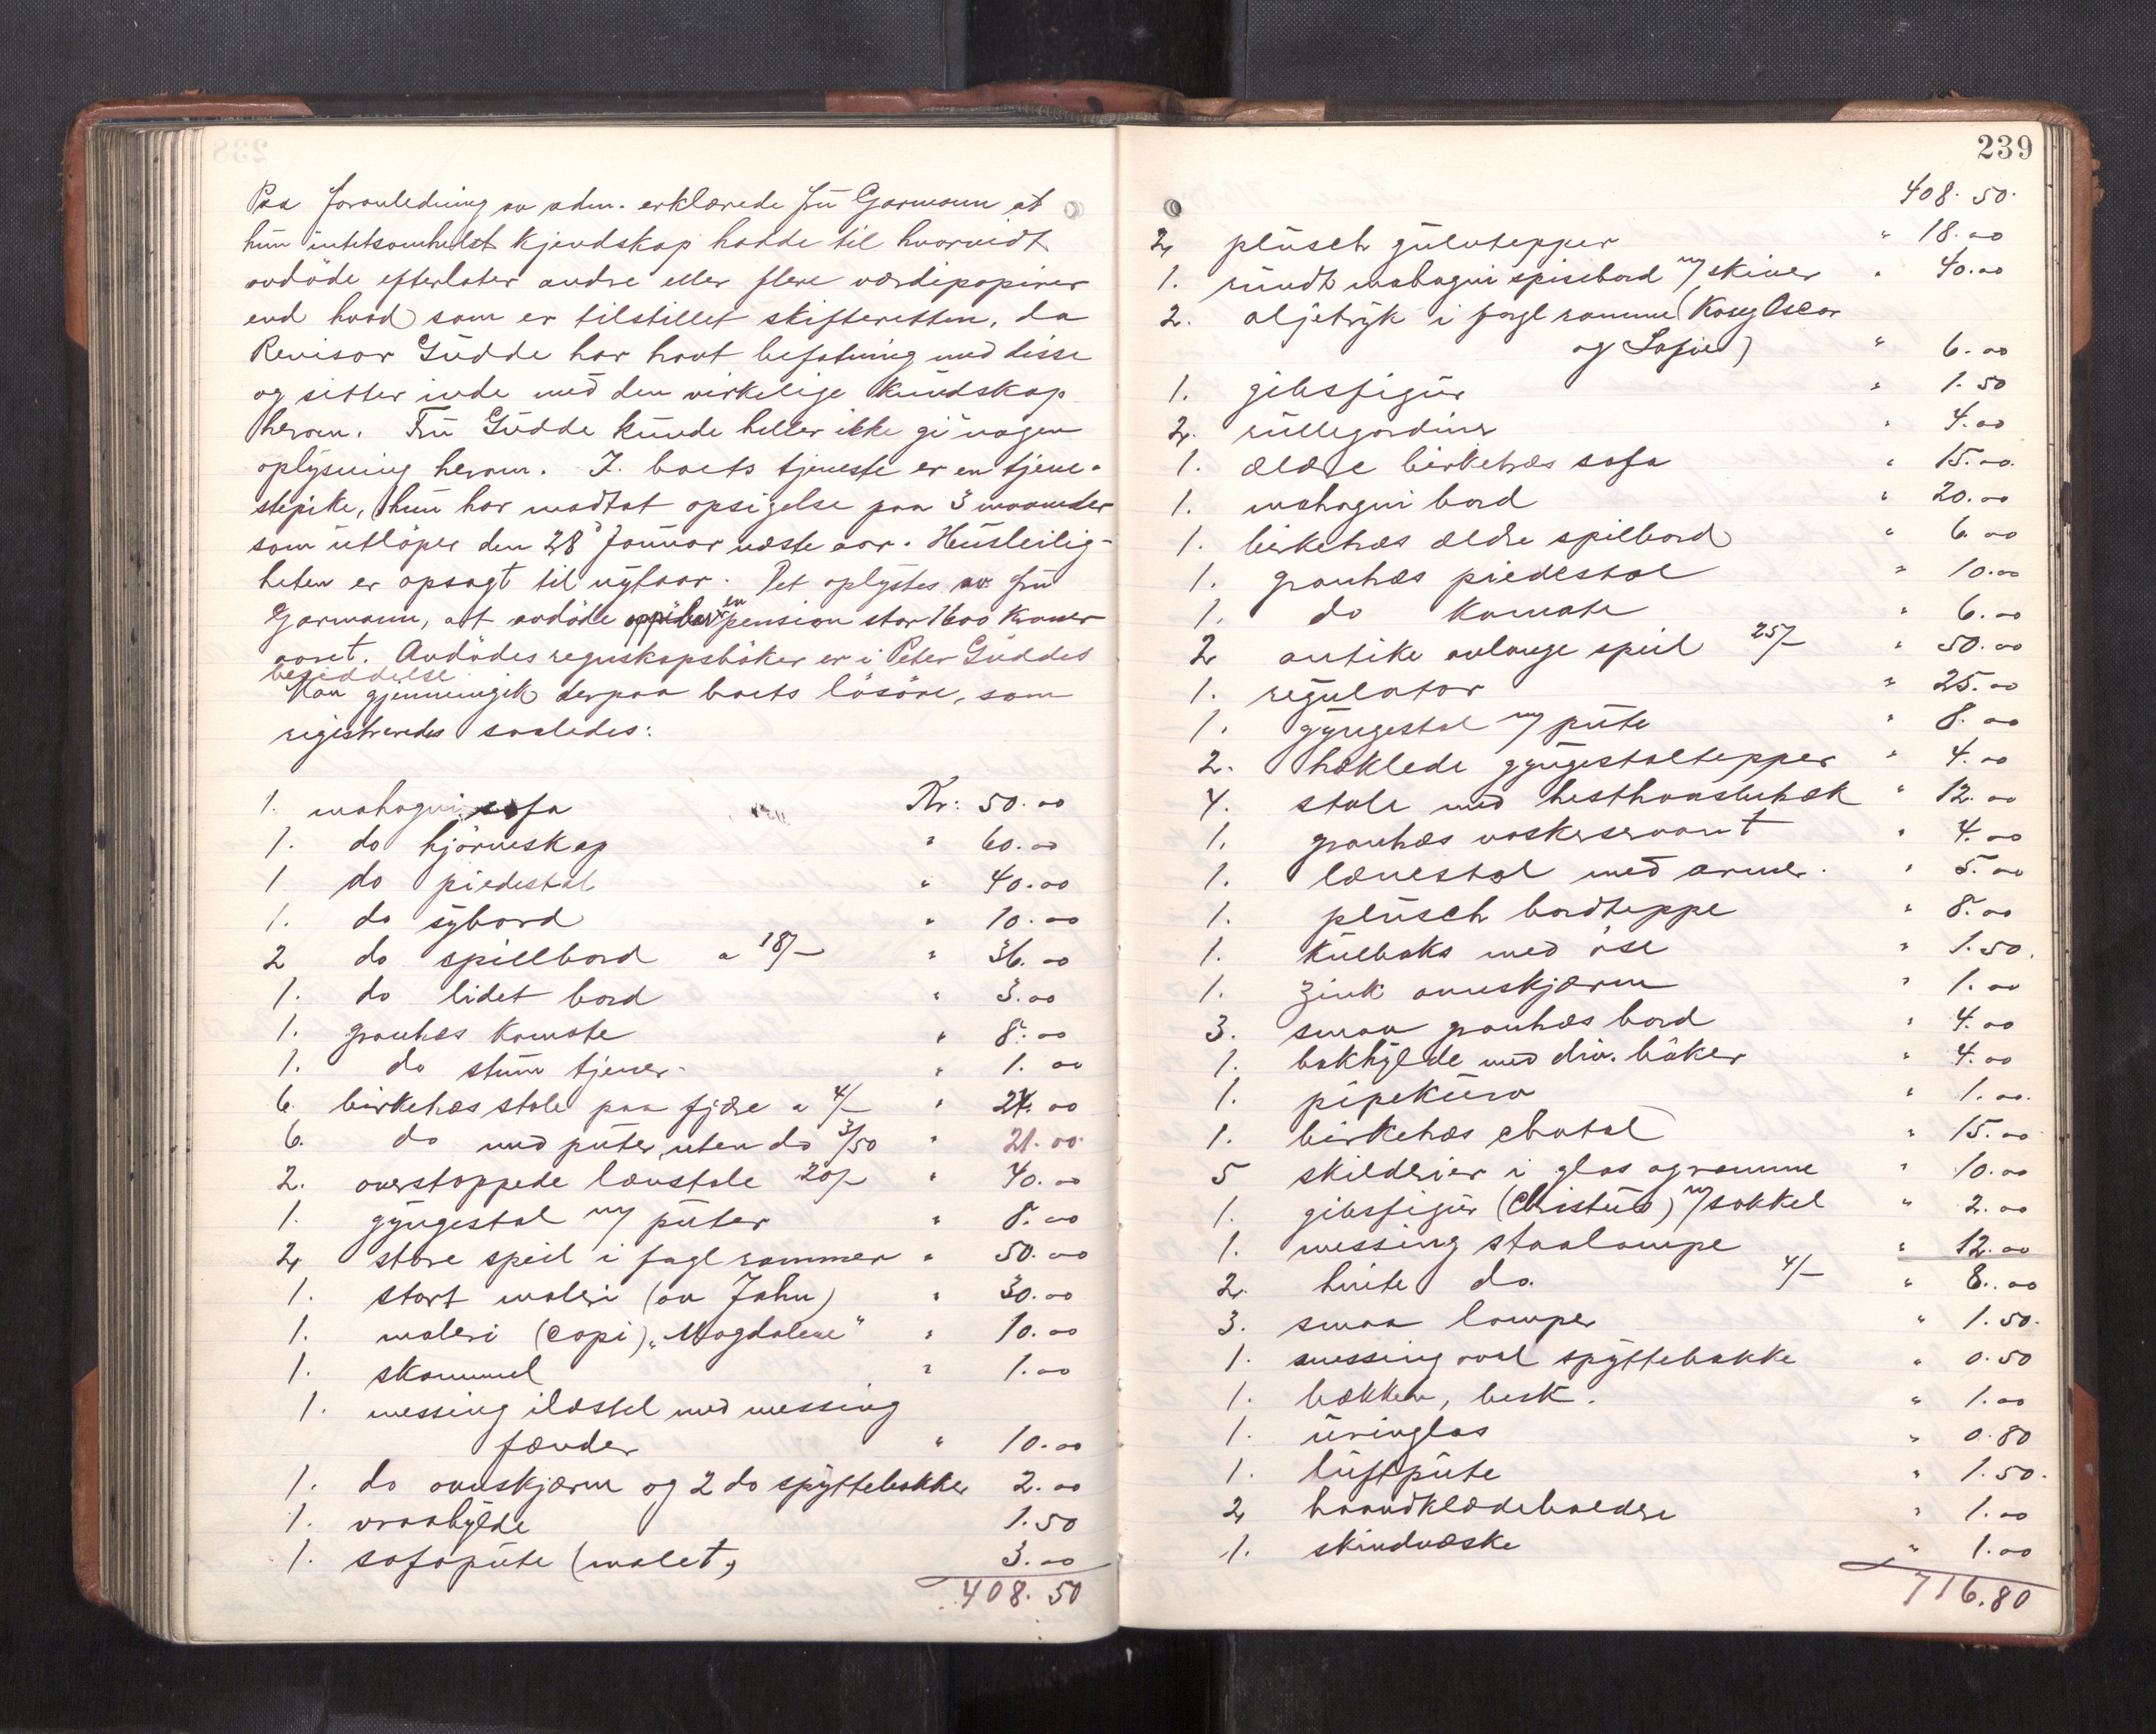 Paa foranledning av adm. erklærede fru Garmann at
hun intetsomhelst kjendskap hadde til hvorvidt
avdöde efterlater andre eller flere værdipapirer
end hvad som er tilstillet skifteretten, da
Revisor Gudde har havt befatning med disse
og sitter inde med den virkelige kundskap
herom. Fru Gudde kunde heller ikke gi nogen
oplysning herom. I boets tjeneste er en tjene-
stepike, hun har modtat opsigelse paa 3 maaneder
som utlöper den 28 Januar næste aar. Husleilig-
heten er opsagt til nytaar. Det oplystes av fru
Garmann, at avdöde en pension stor 1600 kroner
aaret. Avdödes regnskapsböker er i Peter Guddes
besiddelse
Man gjennemgik derpaa boets lösöre, som
registreredes saaledes:
1. mahogni sofa Kr: 50.00
1. do hjörneskap " 60.00
1 do piedestal " 40.00
1. do sybord " 10.00
2 do spillbord a 18/- " 36.00
1. do lidet bord " 3.00
1. grantræs komode " 8.00
1. do stum tjener " 1.00
6. birketræs stole paa fjære a 4/- " 24.00
6. do med puter, uten do 3/50 " 21.00
2. overstoppede lænstole 20/- " 40.00
1. gyngestol m/ puter " 8.00
2 store speil i fagl rammer " 50.00
1. stort maleri (av Jahn) " 30.00
1. maleri (copi) "Magdalene" " 10.00
1. skammel " 1.00
1. messing ildstel med messing
fænder " 10.00
1. do ovnskjærm og 2 do spyttebakker 2.00
1. vraahylde 1.50
1. sofapute (malet) 3.00
408.50
239
408.50
2 plusch gulvtepper " 18.00
1. rundt mahogni spisebord m/ skiver " 40.00
2. oljetryk i forgl ramme (Kong Oscar
og Sofie) " 6.00
1. gibsfigur " 1.50
2. rullegardiner " 4.00
1. ældre birketræs sofa " 15.00
1. mahogni bord " 20.00
1. birketræs ældre spilbord " 6.00
1. grantræs piedestal " 10.00
1. do komode " 6.00
2 antike avlange speil 25/- " 50.00
1. regulator " 25.00
1. gyngestol m/ pute " 8.00
2. hæklede gyngestoltepper " 4.00
4. stole med hesthaarsbetræk " 12.00
1. grantræs vaskeservant " 4.00
1. lænestol med armer. " 5.00
1. plusch bordteppe " 8.00
1. kulboks med öse " 1.50
1. zink ovnskjærm " 1.00
3. smaa grantræs bord " 4.00
1. bokhylde med div. böker " 4.00
1. pipekurv " 1.00
1. birketræs chatol " 15.00
5 skilderier i glas og ramme " 10.00
1. gibsfigur (Christus) m/ sokkel " 2.00
1. messing staalampe " 12.00
2. hvite do. 4/- " 8.00
3. smaa lamper " 1.50
1. messing oval spyttebakke " 0.50
1. bækken, besk. " 1.00
1. uringlas " 0.80
1. luftpute " 1.50
2 haandklædeholdere " 1.00
1. skindvæske " 1.00
716.80